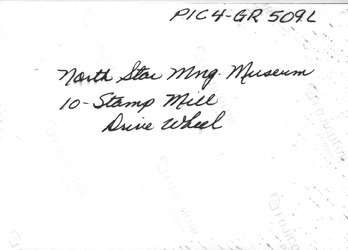 PIC4-GR 509L
North Star Mng. Museum
10-Stamp Mill
Drive Wheel